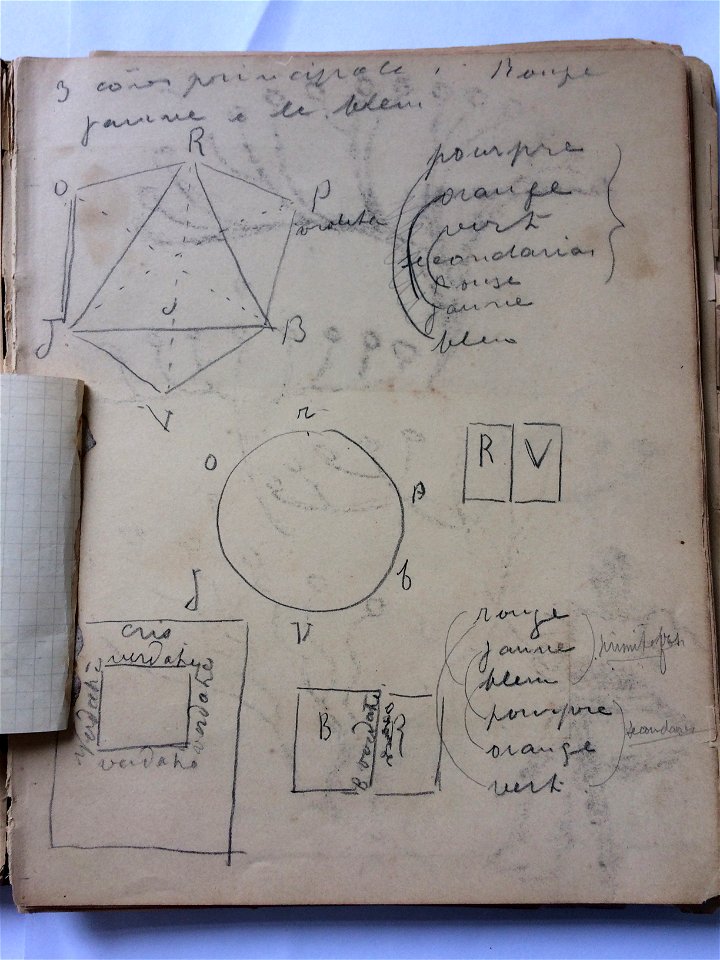 3 principale : Rouge
jaune e le bleu
R
O
P
violette
J
B
V
pourpre
orange
vert
secondarias
rouge
jaune
bleu
r
O
P
b
V
J
R V
verdatre
verdatre
verdatre
verdatre
B
B verdatre
rouge
jaune
bleu
primitifs
pourpre
orange
vert